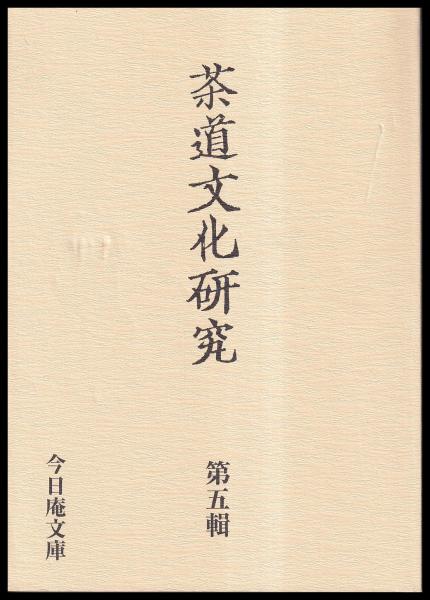 茶道文化研究
第五輯
今日庵文庫